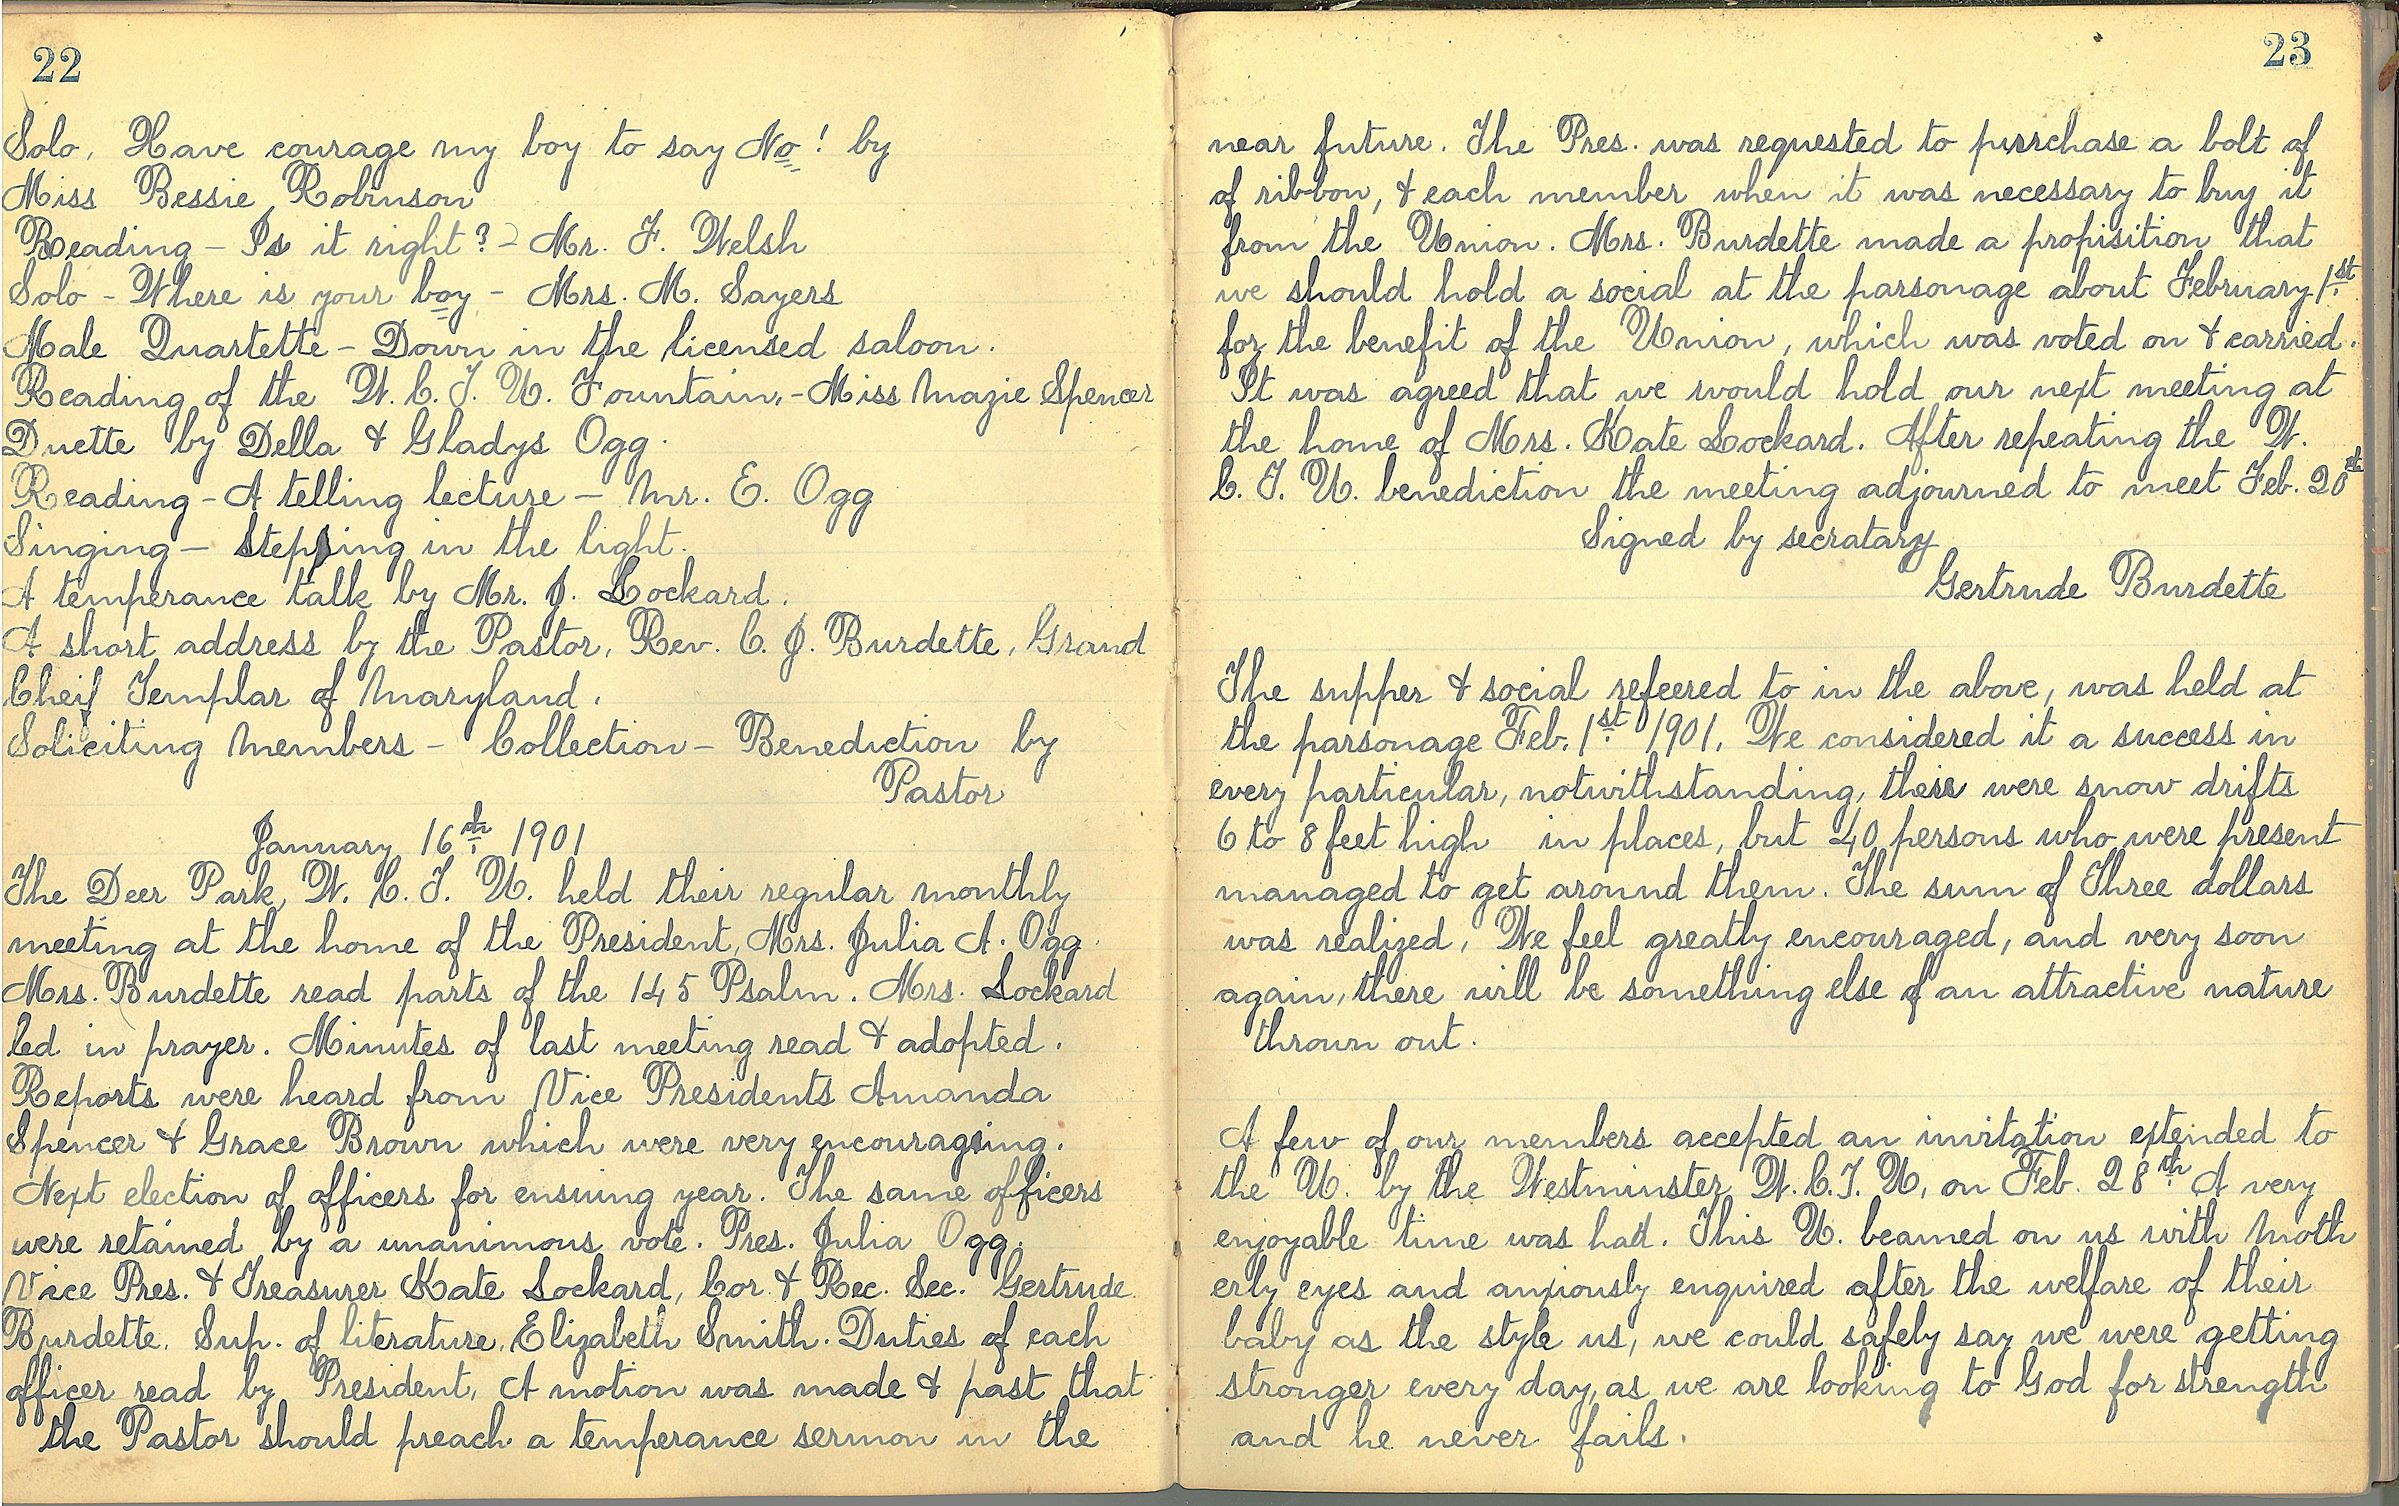 22
Solo, Have courage my boy to say No! by
Miss Bessie Robinson
Reading – Is it right? – Mr. F. Welsh
Solo – Where is your boy – Mrs. M. Sayers
Male Quartette – Down in the licensed saloon.
Reading of the W. C. T. U. Fountain, – Miss Mazie Spencer
Duette by Della & Gladys Ogg.
Reading – A telling lecture – Mr. E. Ogg
Singing – Stepping in the light.
A temperance talk by Mr. J. Lockard.
A short address by the Pastor, Rev. C. J. Burdette, Grand
Cheif Templar of Maryland.
Soliciting Members – Collection – Benediction by
Pastor
January 16th 1901
The Deer Park, W. C. T. U. held their regular monthly
meeting at the home of the President, Mrs. Julia A. Ogg.
Mrs. Burdette read parts of the 145 Psalm. Mrs. Lockard
led in prayer. Minutes of last meeting read & adopted.
Reports were heard from Vice Presidents Amanda
Spencer & Grace Brown which were very encouraging.
Next election of officers for ensuing year. The same officers
were retained by a unanimous vote. Pres. Julia Ogg.
Vice Pres. & Treasurer Kate Lockard, Cor. & Rec. Sec. Gertrude
Burdette. Sup. of literature, Elizabeth Smith. Duties of each
officer read by President, A motion was made & past that
the Pastor should preach a temperance sermon in the
23
near future. The Pres. was requested to purchase a bolt of
of ribbon, & each member when it was necessary to buy it
from the Union. Mrs. Burdette made a propisition that
we should hold a social at the parsonage about February 1st.
for the benefit of the Union, which was voted on & carried.
It was agreed that we would hold our next meeting at
the home of Mrs. Kate Lockard. After repeating the W.
C. T. U. benediction the meeting adjourned to meet Feb. 20th
Signed by secratary
Gertrude Burdette
The supper & social refeered to in the above, was held at
the parsonage Feb. 1st. 1901. We considered it a success in
every particular, notwithstanding, their were snow drifts
6 to 8 feet high in places, but 40 persons who were present
managed to get around them. The sum of Three dollars
was realized, We feel greatly encouraged, and very soon
again, there will be something else of an attractive nature
thrown out.
A few of our members accepted an invitation extended to
the U. by the Westminster W. C. T. U, on Feb. 28th. A very
enjoyable time was had. This U. beamed on us with moth
erly eyes and anxiously enquired after the welfare of their
baby as the style us, we could safely say we were getting
stronger every day, as we are looking to God for strength
and he never fails.